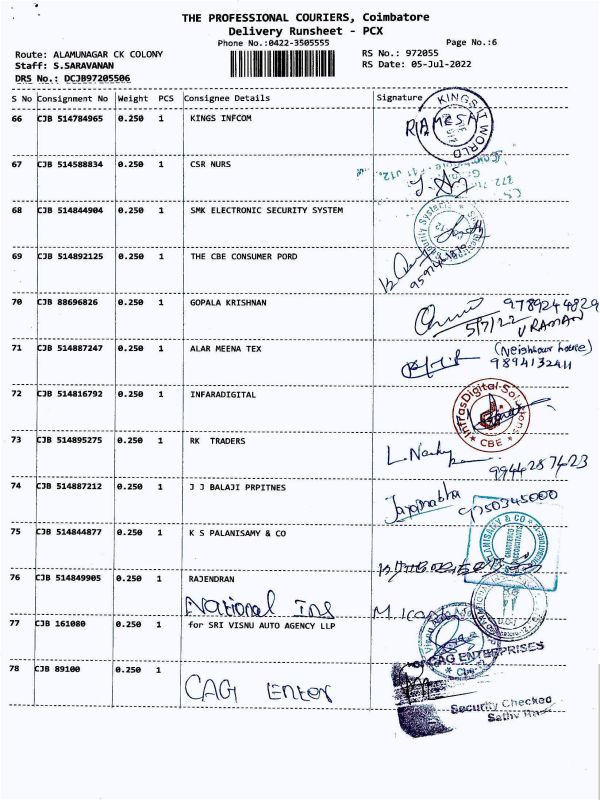 THE PROFESSIONAL COURIERS, Coimbatore
Delivery Runsheet - PCX
Phone No.:0422-3505555 Page No.:6
Route: ALAMUNAGAR CK COLONY RS No.: 972055
Staff: S.SARAVANAN RS Date: 05-Jul-2022
DRS No.: DCJB97205506
S No Consignment No Weight PCS Consignee Details Signature
66 CJB 514784965 0.250 1 KINGS INFCOM
RAMESH
KINGS IT WORLD
67 CJB 514588834 0.250 1 CSR NURS
68 CJB 514844904 0.250 1 SMK ELECTRONIC SECURITY SYSTEM
69 CJB 514892125 0.250 1 THE CBE CONSUMER PORD
70 CJB 88696826 0.250 1 GOPALA KRISHNAN
9789244829
5/7/22 V RAMAN
71 CJB 514887247 0.250 1 ALAR MEENA TEX
(Neighbour house)
9894132411
72 CJB 514816792 0.250 1 INFARADIGITAL
InfrasDigital Solutions
CBE
73 CJB 514895275 0.250 1 RK TRADERS
9944287423
74 CJB 514887212 0.250 1 J J BALAJI PRPITNES
9750345000
75 CJB 514844877 0.250 1 K S PALANISAMY & CO
CHARTERED ACCOUNTANTS
76 CJB 514849905 0.250 1 RAJENDRAN
National Ins
77 CJB 161080 0.250 1 for SRI VISNU AUTO AGENCY LLP
78 CJB 89100 0.250 1
CAG Enter
For CAG ENTERPRISES
Security Checked